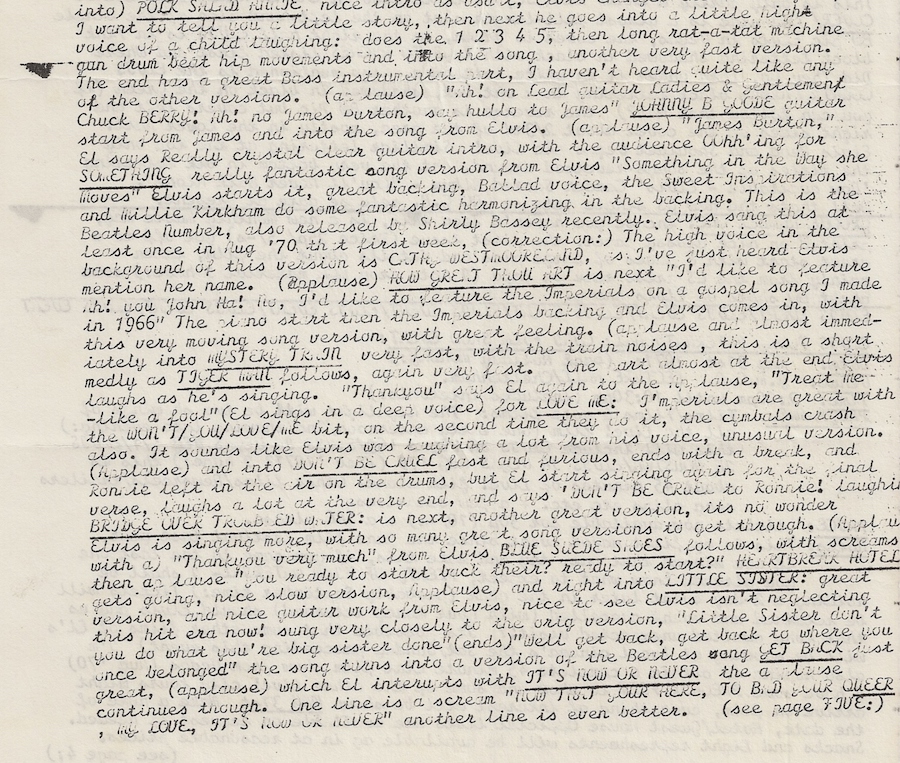 into) POLK SALAD ANNIE, nice intro as usual, Elvis
I want to tell you a little story, then next he goes into a little high
voice of a child laughing: does the 1 2 3 4 5, then long rat-a-tat machine
gun drum beat hip movements and into the song , another very fast version.
The end has a great Bass instrumental part, I haven't heard quite like any
of the other versions. (applause) "Ah! on Lead guitar Ladies & Gentlemen
Chuck BERRY! Ah! no James Burton, say hullo to James" JOHNNY B GOODE guitar
start from James and into the song from Elvis. (applause) "James Burton,"
El says Really crystal clear guitar intro, with the audience OOhh'ing for
SOMETHING really fantastic song version from Elvis "Something in the Way she
Moves" Elvis starts it, great backing, Ballad voice, the Sweet Inspirations
and Millie Kirkham do some fantastic harmonizing in the backing. This is the
Beatles Number, also released by Shirly Bassey recently. Elvis sang this at
least once in Aug '70 that first week, (correction:) The high voice in the
background of this version is CATHY WESTMORELAND, as I've just heard Elvis
mention her name. (applause) HOW GREAT THOU ART is next "I'd like to feature
Ah! you John Ha! No, I'd like to feature the Imperials on a gospel song I made
in 1966" The piano start then the Imperials backing and Elvis comes in, with
this very moving song version, with great feeling. (applause and almost immed-
iately into MYSTERY TRAIN very fast, with the train noises , this is a short
medly as TIGER MAN follows, again very fast. One part almost at the end Elvis
laughs as he's singing. "Thankyou" says El again to the Applause, "Treat Me
-like a fool" (El sings in a deep voice) for LOVE ME: I'mperials are great with
the WON'T/YOU/LOVE/ME bit, on the second time they do it, the cymbals crash
also. It sounds like Elvis was laughing a lot from his voice, unusual version.
(Applause) and into DON'T BE CRUEL fast and furious, ends with a break, and
Ronnie left in the air on the drums, but El start singing again for the final
verse, laughs a lot at the very end, and says 'DON'T BE CRUEL to Ronnie! laughi
BRIDGE OVER TROUBLED WATER: is next, another great version, its no wonder
Elvis is singing more, with so many great song versions to get through. (Applau
with a) "Thankyou very much" from Elvis BLUE SUEDE SHOES follows, with screams
then applause "you ready to start back their? ready to start?" HEARTBREAK HOTEL
gets going, nice slow version, Applause) and right into LITTLE SISTER: great
version, and nice guitar work from Elvis, nice to see Elvis isn't neglecting
this hit era now! sung very closely to the orig version, "Little Sister don't
you do what you're big sister done" (ends) "Well get back, get back to where you
once belonged" the song turns into a version of the Beatles song GET BACK just
great, (applause) which El interupts with IT'S NOW OR NEVER the applause
continues though. One line is a scream "NOW THAT YOUR HERE, TO BAD YOUR QUEER
, MY LOVE, IT'S NOW OR NEVER" another line is even better. (see page FIVE:)